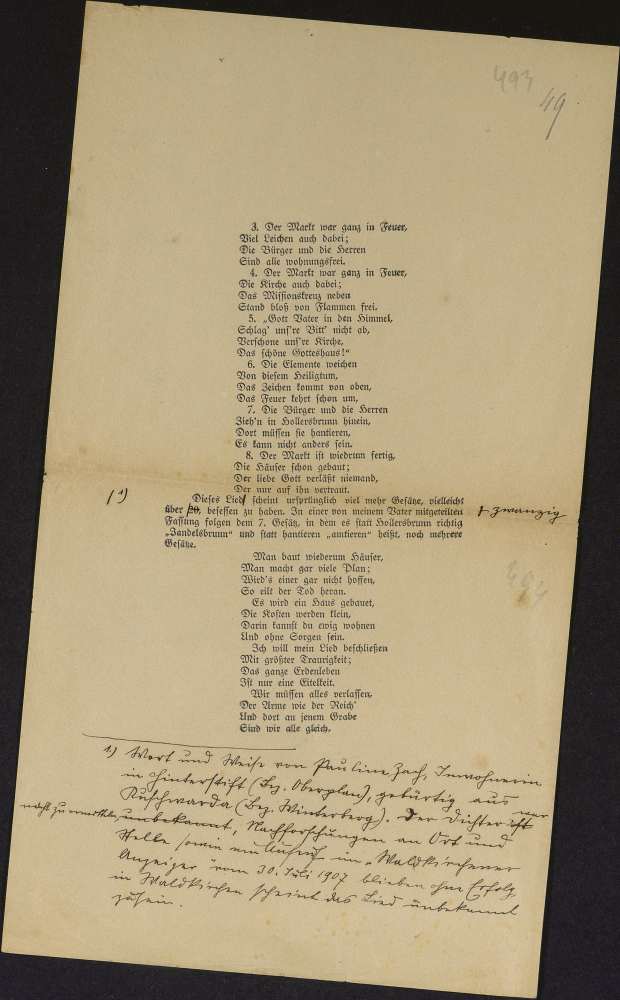 493
49
3. Der Markt war ganz in Feuer,
Viel Leichen auch dabei;
Die Bürger und die Herren
Sind alle wohnungsfrei.
4. Der Markt war ganz in Feuer,
Die Kirche auch dabei;
Das Missionskreuz neben
Stand bloß von Flammen frei.
5. „Gott Vater in den Himmel,
Schlag' uns're Bitt' nicht ab,
Verschone uns're Kirche,
Das schöne Gotteshaus!"
6. Die Elemente weichen
Von diesem Heiligtum,
Das Zeichen kommt von oben,
Das Feuer kehrt schon um,
7. Die Bürger und die Herren
Zieh'n in Hollersbrunn hinein,
Dort müssen sie hantieren,
Es kann nicht anders sein.
8. Der Markt ist wiedrum fertig,
Die Häuser schon gebaut;
Der liebe Gott verläßt niemand,
Der nur auf ihn vertraut.
/ 1)
Dieses Lied scheint ursprünglich viel mehr Gesätze, vielleicht
über 20, besessen zu haben. In einer von meinem Vater mitgeteilten
zwanzig
Fassung folgen dem 7. Gesätz, in dem es statt Hollersbrunn richtig
„Jandelsbrunn" und statt hantieren „amtieren" heißt, noch mehrere
Gesätze.
Man baut wiederum Häuser,
Man macht gar viele Plan;
Wird's einer gar nicht hoffen,
So eilt der Tod heran.
Es wird ein Haus gebauet,
Die Kosten werden klein,
Darin kannst du ewig wohnen
Und ohne Sorgen sein.
Ich will mein Lied beschließen
Mit größter Traurigkeit;
Das ganze Erdenleben
Ist nur eine Eitelkeit.
Wir müssen alles verlassen,
Der Arme wie der Reich'
Und dort an jenem Grabe
Sind wir alle gleich.
1) Wort und Weise von Pauline Zach, Inwohnerin
in Hinterstift (Bez. Oberplan), gebürtig aus
Kuschwarda (Bez. Winterberg). Der Dichter ist
war
nicht zu ermitteln, unbekannt, Nachforschungen an Ort und
Stelle sowie ein Aufruf im „Waldkirchener
Anzeiger" vom 30. Juli 1907 blieben ohne Erfolg,
in Waldkirchen scheint das Lied unbekannt
zu sein.